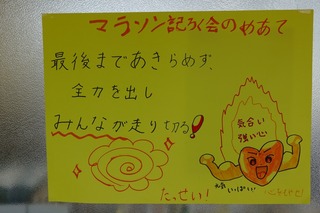 マラソン記ろく会のめあて
最後まであきらめず、
全力を出し
みんなが走り切る!
気合い
強い心
元気いっぱい
たっせい!